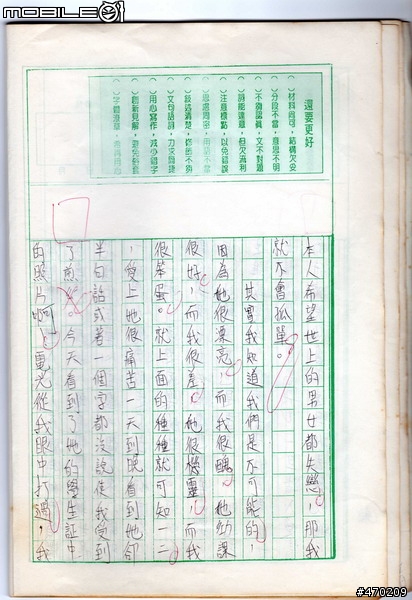 MOBILE01
還要更好
( )材料尚可，結構欠妥
( )分段不當，意思不明
( )不夠認真，文不對題
( )詞能達意，但欠流利
( )注意標點，以免錯誤
( )思慮周密，用語不當
( )敘述清楚，修辭不夠
( )文句語詞，力求簡練
( )用心寫作，減少錯字
( )創新見解，避免俗套
( )字體潦草，
本人希望世上的男女都失戀，那我
就不會孤單。
其實我知道我們是不可能的，
因為她很漂亮，而我很醜。她功課
很好，而我很差。她很機靈，而我
很笨蛋。就上面的種種就可知一二
，愛上她很痛苦一天到晚看到她卻
半句話或著一個字都沒說使我受到
了煎熬。今天看到了她的學生証中
的照片啊！電光從我眼中打過，我
#470209